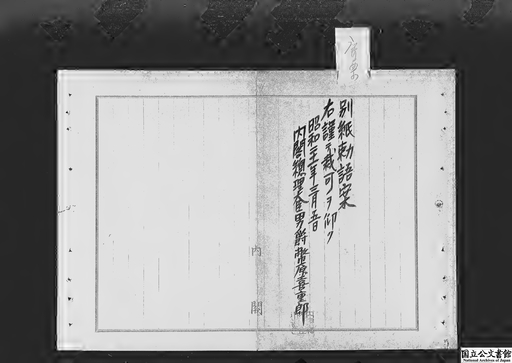 別紙勅語案
右謹テ裁可ヲ仰ク
昭和二十一年三月五日
内閣總理大臣男爵幣原喜重郎
内閣
国立公文書館
National Archives of Japan